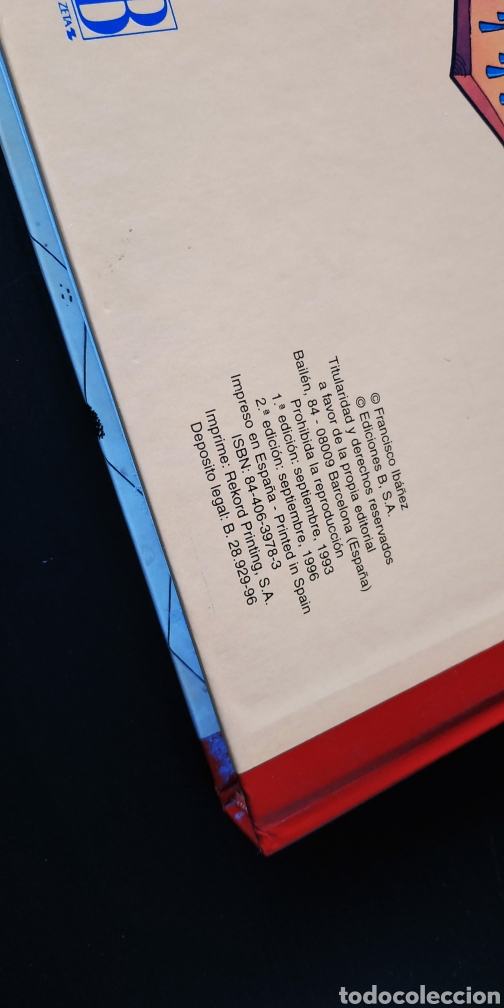 B
ZETA
© Francisco Ibáñez
© Ediciones B, S.A.
Titularidad y derechos reservados
a favor de la propia editorial
Bailén, 84 - 08009 Barcelona (España)
Prohibida la reproducción
1.ª edición: septiembre, 1993
2.ª edición: septiembre, 1996
Impreso en España - Printed in Spain
ISBN: 84-406-3978-3
Imprime: Rekord Printing, S.A.
Deposito legal: B. 28.929-96
todocoleccion